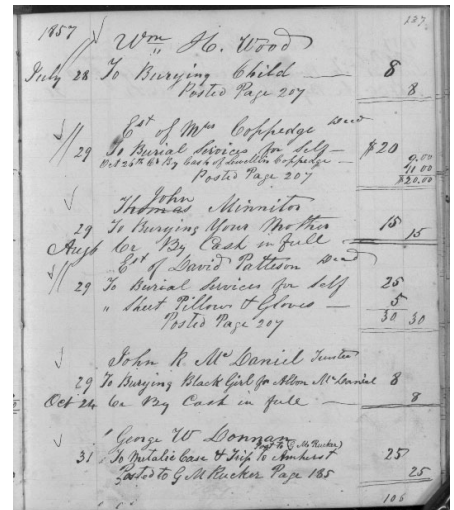 187
1857
Wm H. Wood
July 28 To Burying Child — 8
Posted Page 207 8
Est of Mrs Coppedge Decd
29 To Burial Services for Self — $20
Oct 26th Cr By Cash of Lewellen Coppedge — 9.00
11.00
Posted Page 207 $20.00
John
Thomas Minnitor
29 To Burying Your Mother 15
Aug 6 Cr By Cash in full — 15
Est of David Patteson Decd
29 To Burial Services for Self 25
" Sheet Pillow & Gloves — 5
30 30
Posted Page 207
John R McDaniel Trustee
29 To Burying Black Girl for McDaniel 8
Oct 24 Cr By Cash in full — 8
George W Donnan Post to G McRucker
31 To Metalic Case & Trip to Amherst 25
Posted to G M Rucker Page 185 25
106